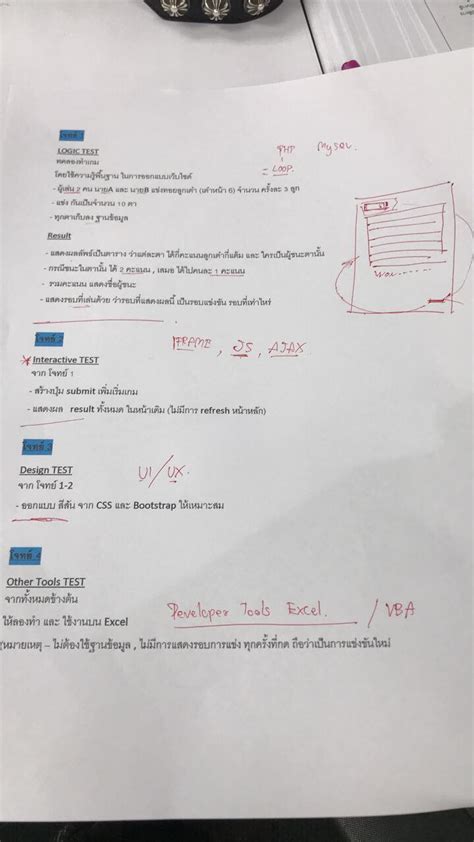 โจทย์ 1
LOGIC TEST
PHP MySQL
ทดลองทำเกม
= LOOP
โดยใช้ความรู้พื้นฐาน ในการออกแบบเว็บไซต์
- ผู้เล่น 2 คน นายA และ นายB แข่งทอยลูกเต๋า (เต๋าหน้า 6) จำนวน ครั้งละ 3 ลูก
- แข่ง กันเป็นจำนวน 10 ตา
- ทุกตาเก็บลง ฐานข้อมูล
Result
- แสดงผลลัพธ์เป็นตาราง ว่าแต่ละตา ได้กี่คะแนนลูกเต๋ากี่แต้ม และ ใครเป็นผู้ชนะตานั้น
- กรณีชนะในตานั้น ได้ 2 คะแนน , เสมอ ได้ไปคนละ 1 คะแนน
- รวมคะแนน แสดงชื่อผู้ชนะ
- แสดงรอบที่เล่นด้วย ว่ารอบที่แสดงผลนี้ เป็นรอบแข่งขัน รอบที่เท่าไหร่
โจทย์ 2
IFRAME , JS , AJAX
Interactive TEST
จาก โจทย์ 1
- สร้างปุ่ม submit เพิ่มเริ่มเกม
- แสดงผล result ทั้งหมด ในหน้าเดิม (ไม่มีการ refresh หน้าหลัก)
โจทย์ 3
Design TEST
UI/UX.
จาก โจทย์ 1-2
- ออกแบบ สีสัน จาก CSS และ Bootstrap ให้เหมาะสม
โจทย์ 4
Other Tools TEST
จากทั้งหมดข้างต้น
Developer Tools Excel. / VBA
ให้ลองทำ และ ใช้งานบน Excel
หมายเหตุ – ไม่ต้องใช้ฐานข้อมูล , ไม่มีการแสดงรอบการแข่ง ทุกครั้งที่กด ถือว่าเป็นการแข่งขันใหม่